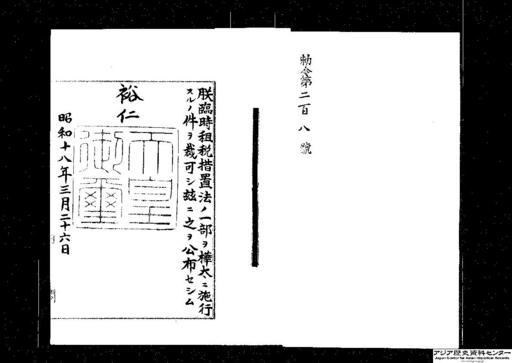 勅令第二百八號
朕臨時租税措置法ノ一部ヲ樺太ニ施行
スルノ件ヲ裁可シ玆ニ之ヲ公布セシム
裕仁
天皇
御璽
昭和十八年三月二十六日
アジア歴史資料センター
Japan Center for Asian Historical Records